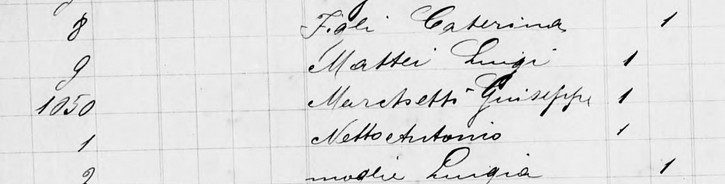 8 Figli Caterina 1
9 Mattei Luigi 1
1050 Marchetti Giuseppe 1
1 Netto Antonio 1
2 moglie Luigia 1